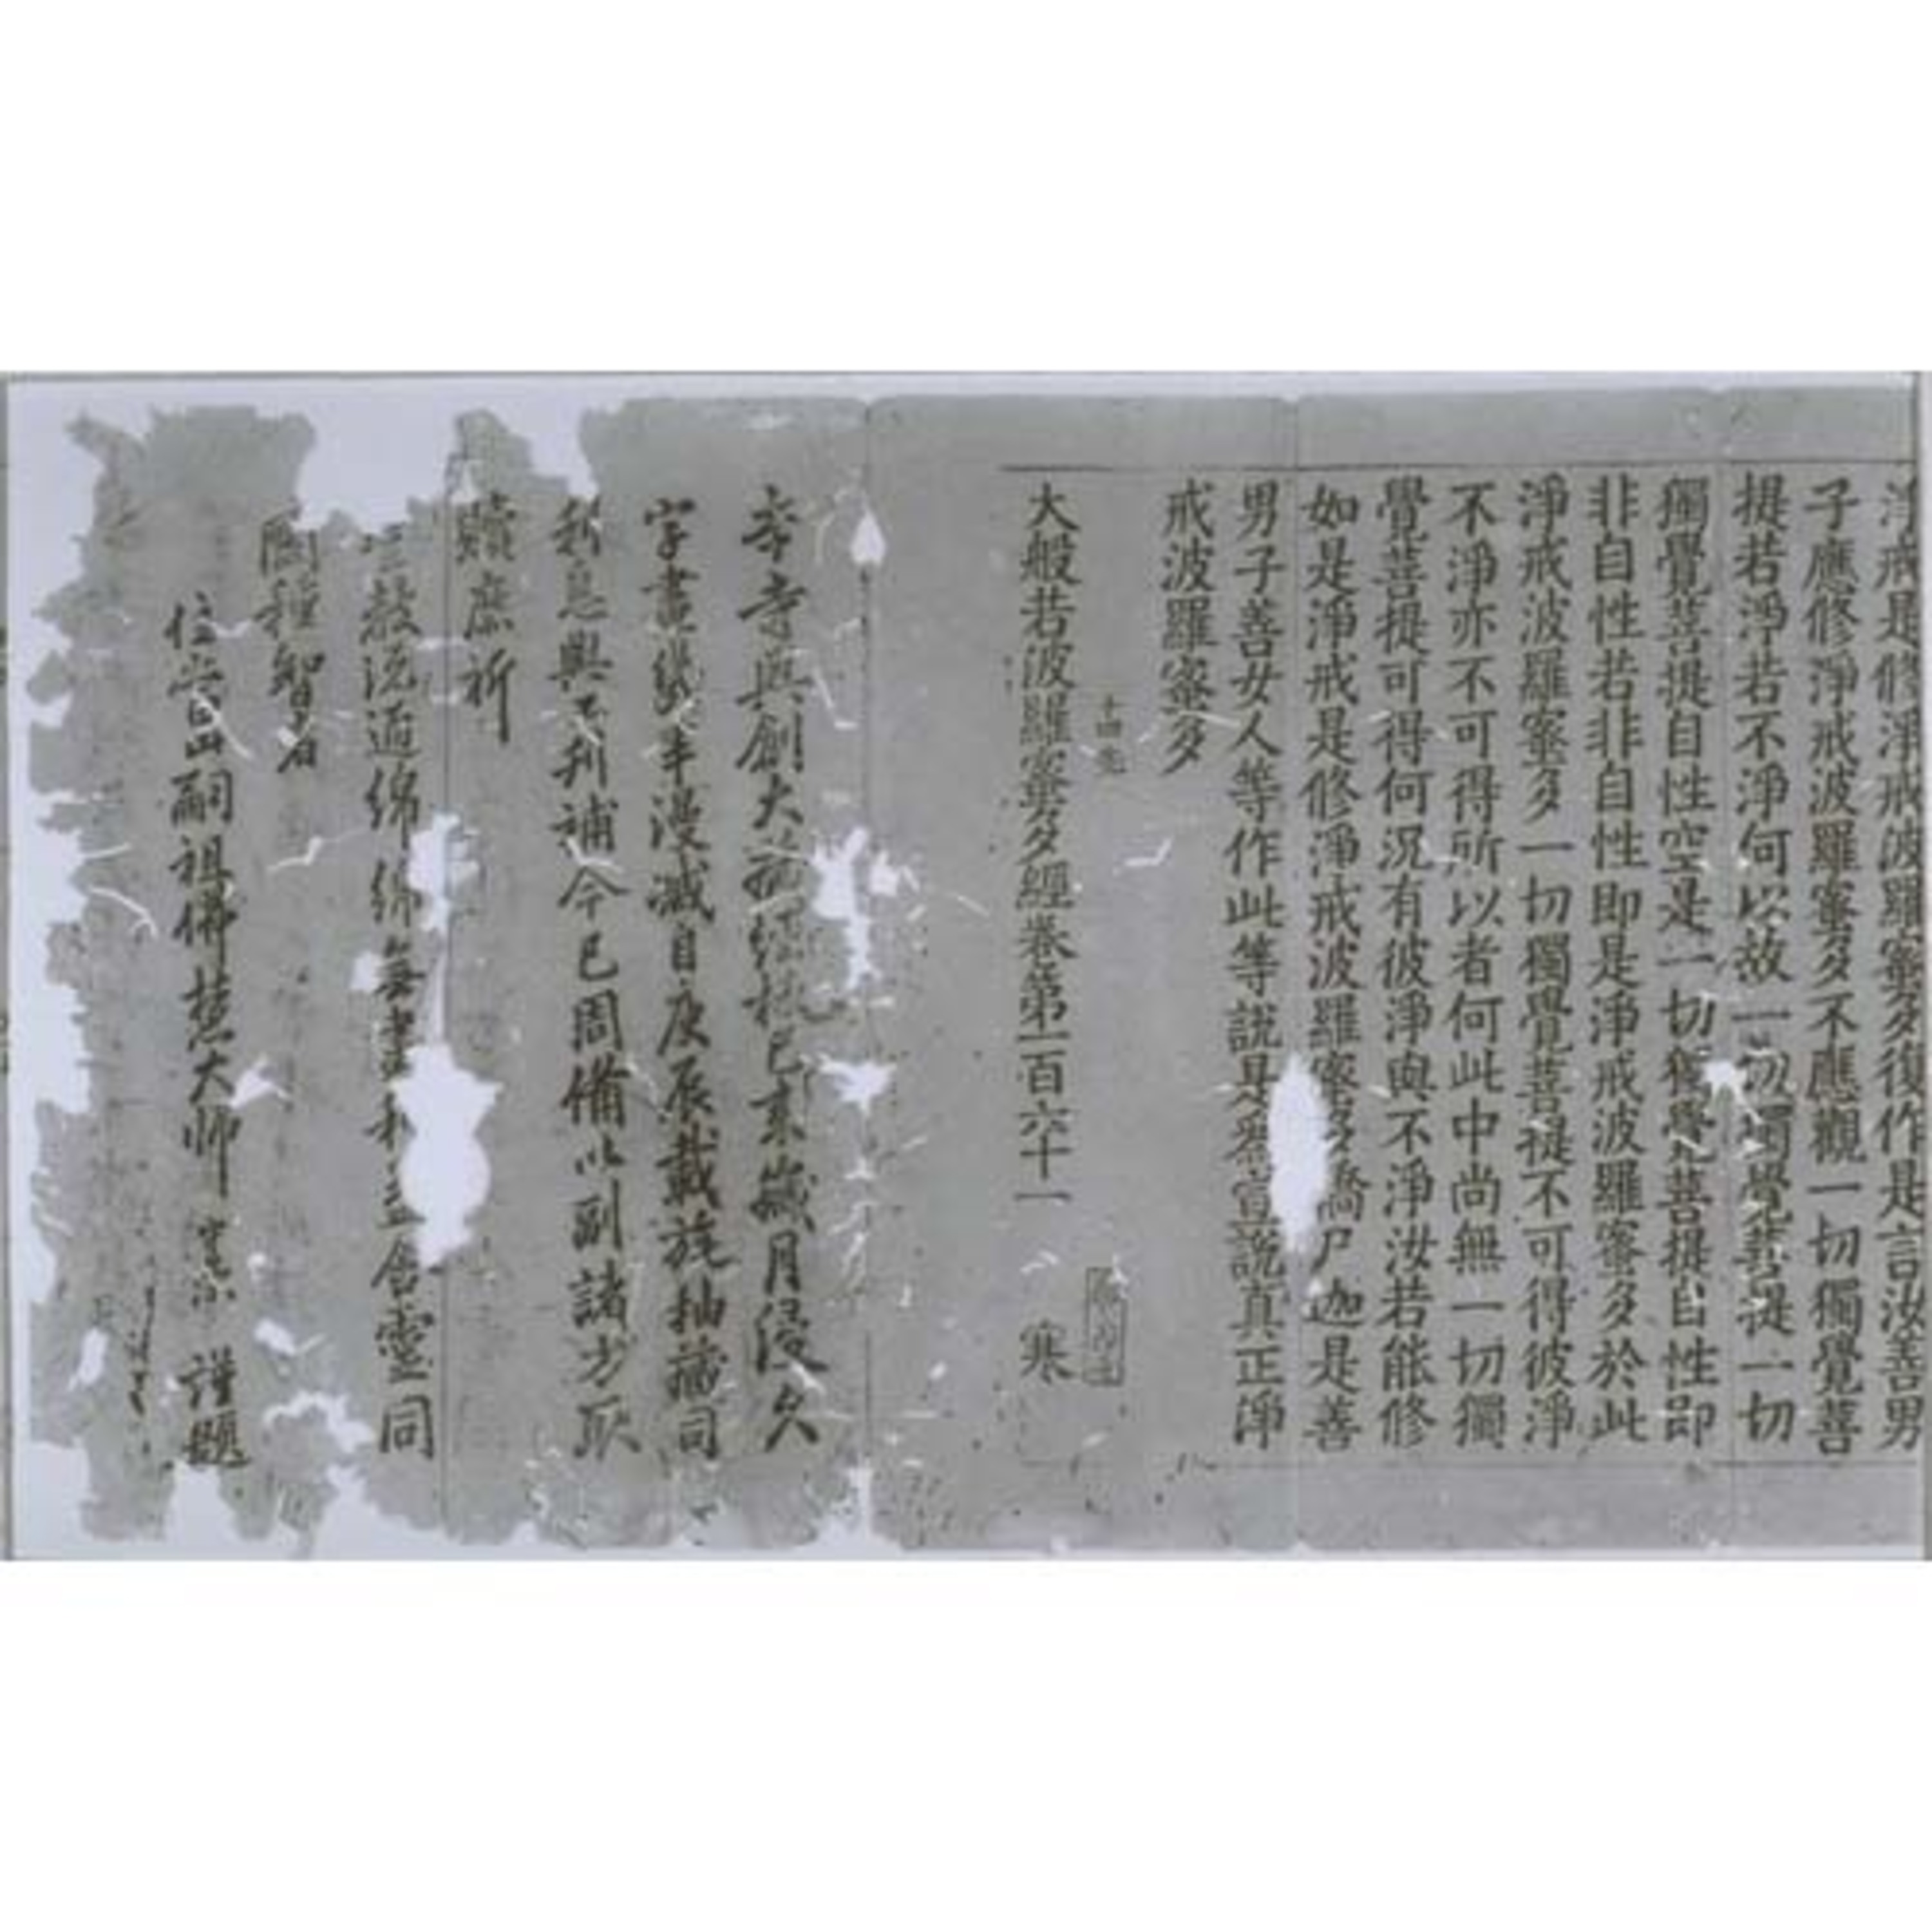 淨戒是修淨戒波羅蜜多復作是言汝善男
子應修淨戒波羅蜜多不應觀一切獨覺菩
提若淨若不淨何以故一切獨覺菩提一切
獨覺菩提自性空是一切獨覺菩提自性即
非自性若非自性即是淨戒波羅蜜多於此
淨戒波羅蜜多一切獨覺菩提不可得彼淨
不淨亦不可得所以者何此中尚無一切獨
覺菩提可得何況有彼淨與不淨汝若能修
如是淨戒是修淨戒波羅蜜多憍尸迦是善
男子善女人等作此等說是為宣說真正淨
戒波羅蜜多
大般若波羅蜜多經卷第一百六十一 寒
寺與創大藏經板已未歲月浸久
字畫漫滅自庚辰載旋抽藏司
利息與工刊補今已周備以副諸方
贖庶祈
教流通綿綿無 含靈同
圓種智者
住 山嗣祖佛慧大師 謹題